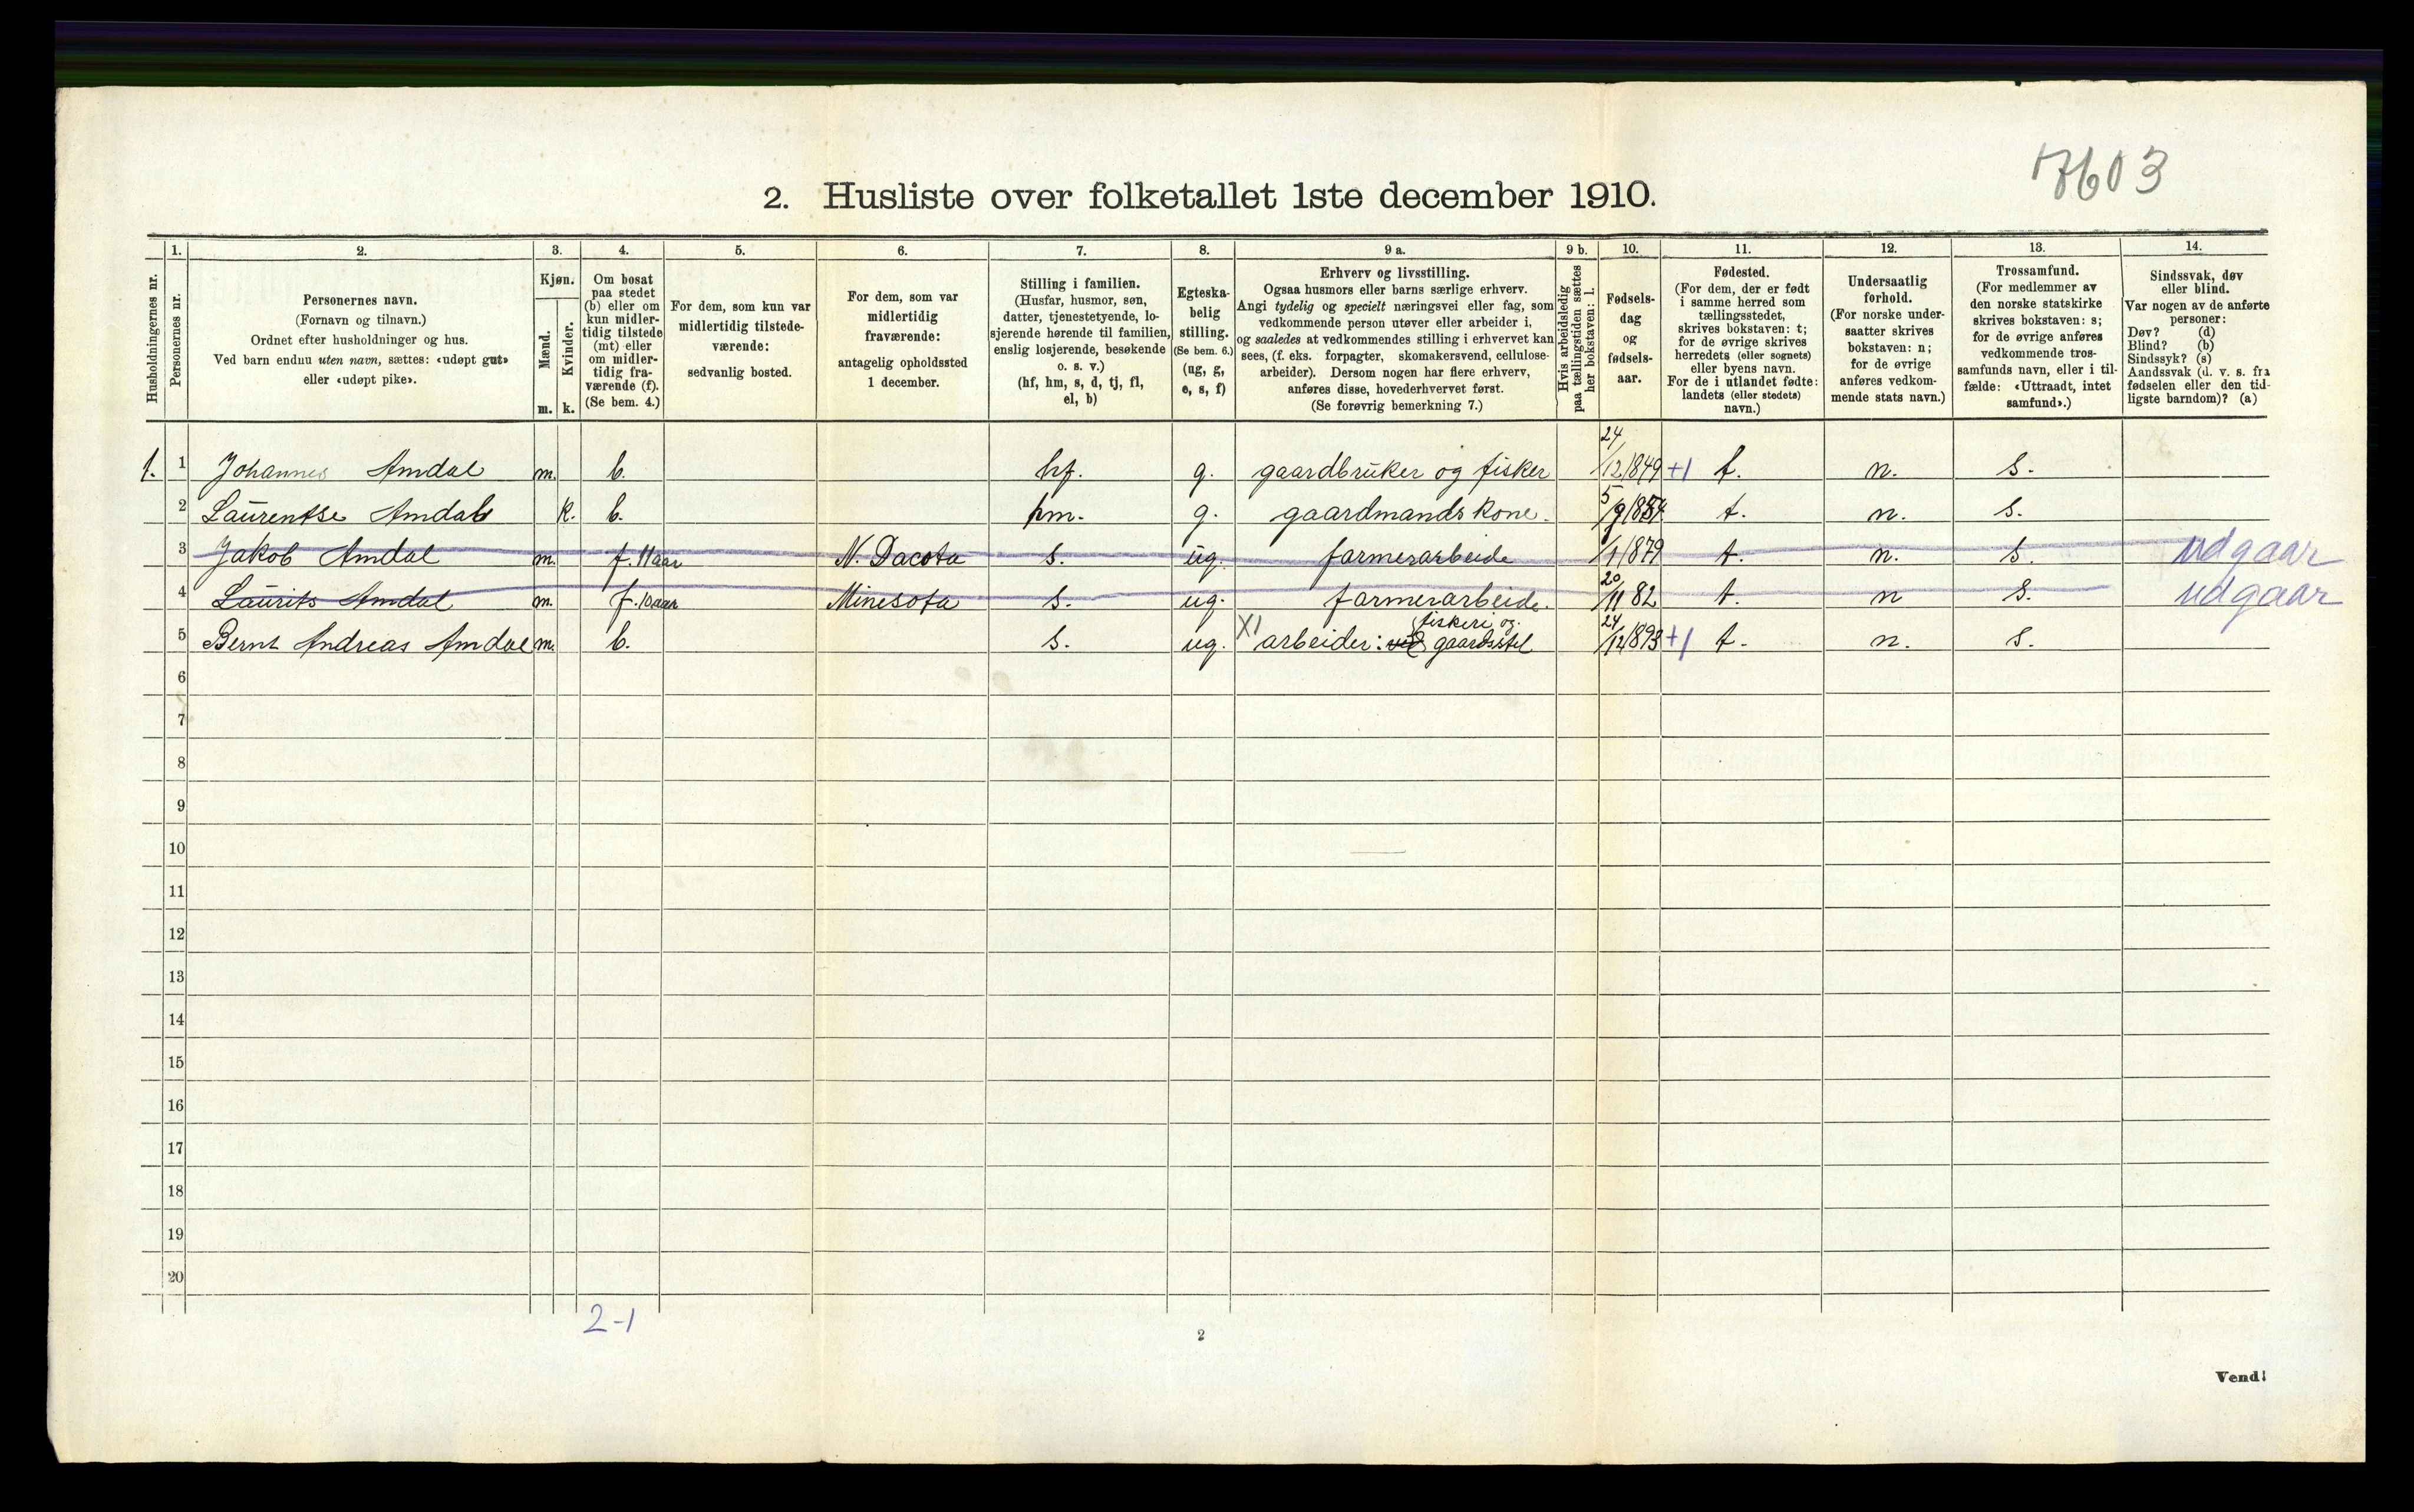 7603
2. Husliste over folketallet 1ste december 1910.
Husholdningernes nr.
1.
Personernes nr.
2.
Personernes navn.
(Fornavn og tilnavn.)
Ordnet efter husholdninger og hus.
Ved barn endnu uten navn, sættes: «udøpt gut»
eller «udøpt pike».
3.
Kjøn.
Mænd.
m.
Kvinder.
k.
4.
Om bosat
paa stedet
(b) eller om
kun midler-
tidig tilstede
(mt) eller
om midler-
tidig fra-
værende (f).
(Se bem. 4.)
5.
For dem, som kun var
midlertidig tilstede-
værende:
sedvanlig bosted.
6.
For dem, som var
midlertidig
fraværende:
antagelig opholdssted
1 december.
7.
Stilling i familien.
(Husfar, husmor, søn,
datter, tjenestetyende, lo-
sjerende hørende til familien,
enslig losjerende, besøkende
o. s. v.)
(hf, hm, s, d, tj, fl,
el, b)
8.
Egteska-
belig
stilling.
(Se bem. 6.)
(ug, g,
e, s, f)
9 a.
Erhverv og livsstilling.
Ogsaa husmors eller barns særlige erhverv.
Angi tydelig og specielt næringsvei eller fag, som
vedkommende person utøver eller arbeider i,
og saaledes at vedkommendes stilling i erhvervet kan
sees, (f. eks. forpagter, skomakersvend, cellulose-
arbeider). Dersom nogen har flere erhverv,
anføres disse, hovederhvervet først.
(Se forøvrig bemerkning 7.)
9 b.
Hvis arbeidsledig
paa tællingstiden sættes
her bokstaven: l.
10.
Fødsels-
dag
og
fødsels-
aar.
11.
Fødested.
(For dem, der er født
i samme herred som
tællingsstedet,
skrives bokstaven: t;
for de øvrige skrives
herredets (eller sognets)
eller byens navn.
For de i utlandet fødte:
landets (eller stedets)
navn.)
12.
Undersaatlig
forhold.
(For norske under-
saatter skrives
bokstaven: n;
for de øvrige
anføres vedkom-
mende stats navn.)
13.
Trossamfund.
(For medlemmer av
den norske statskirke
skrives bokstaven: s;
for de øvrige anføres
vedkommende tros-
samfunds navn, eller i til-
fælde: «Uttraadt, intet
samfund».)
14.
Sindssvak, døv
eller blind.
Var nogen av de anførte
personer:
Døv? (d)
Blind? (b)
Sindssyk? (s)
Aandssvak (d. v. s. fra
fødselen eller den tid-
ligste barndom)? (a)
1. 1 Johannes Amdal m. b. hf. g. gaardbruker og fisker 24/12 1849 +1 t. n. s.
2 Laurentse Amdal k. b. hm. g. gaardmandskone. 5/9 1854 t. n. s.
3 Jakob Amdal m. f. 11 aar N. Dacota s. ug. farmerarbeide /1 1879 t. n. s. udgaar
4 Laurits Amdal m. f. 10 aar Minesota s. ug. farmerarbeide. 20/11 82 t. n s. udgaar
5 Bernt Andreas Amdal m. b. s. ug. X1 arbeider: ved fiskeri og gaardsstel 24/12 1893 +1 t. n. s.
6
7
8
9
10
11
12
13
14
15
16
17
18
19
20
2-1
2
Vend!